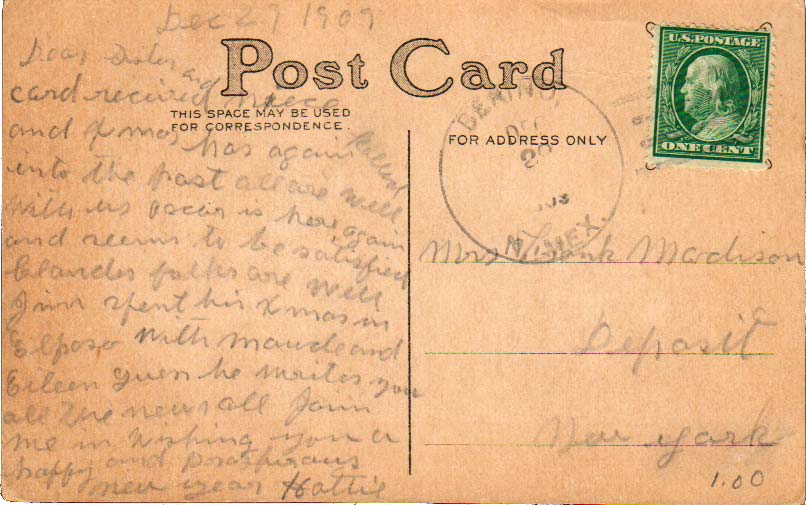 Dec 27 1909
Post Card
THIS SPACE MAY BE USED
FOR CORRESPONDENCE.
FOR ADDRESS ONLY
Dear Sister and
card received
and Xmas has again rolled
into the past all are well
with us Oscar is here again
and seems to be satisfied
Claudes folks are well
Jim spent his Xmas in
Elpaso with Maude and
Eileen guess he writes you
all the news all Join
me in wishing you a
happy and prosperous
new year Hattie
U.S. POSTAGE
ONE CENT
BERINO,
N. MEX.
Mrs Frank Madison
Deposit
New York
1.00